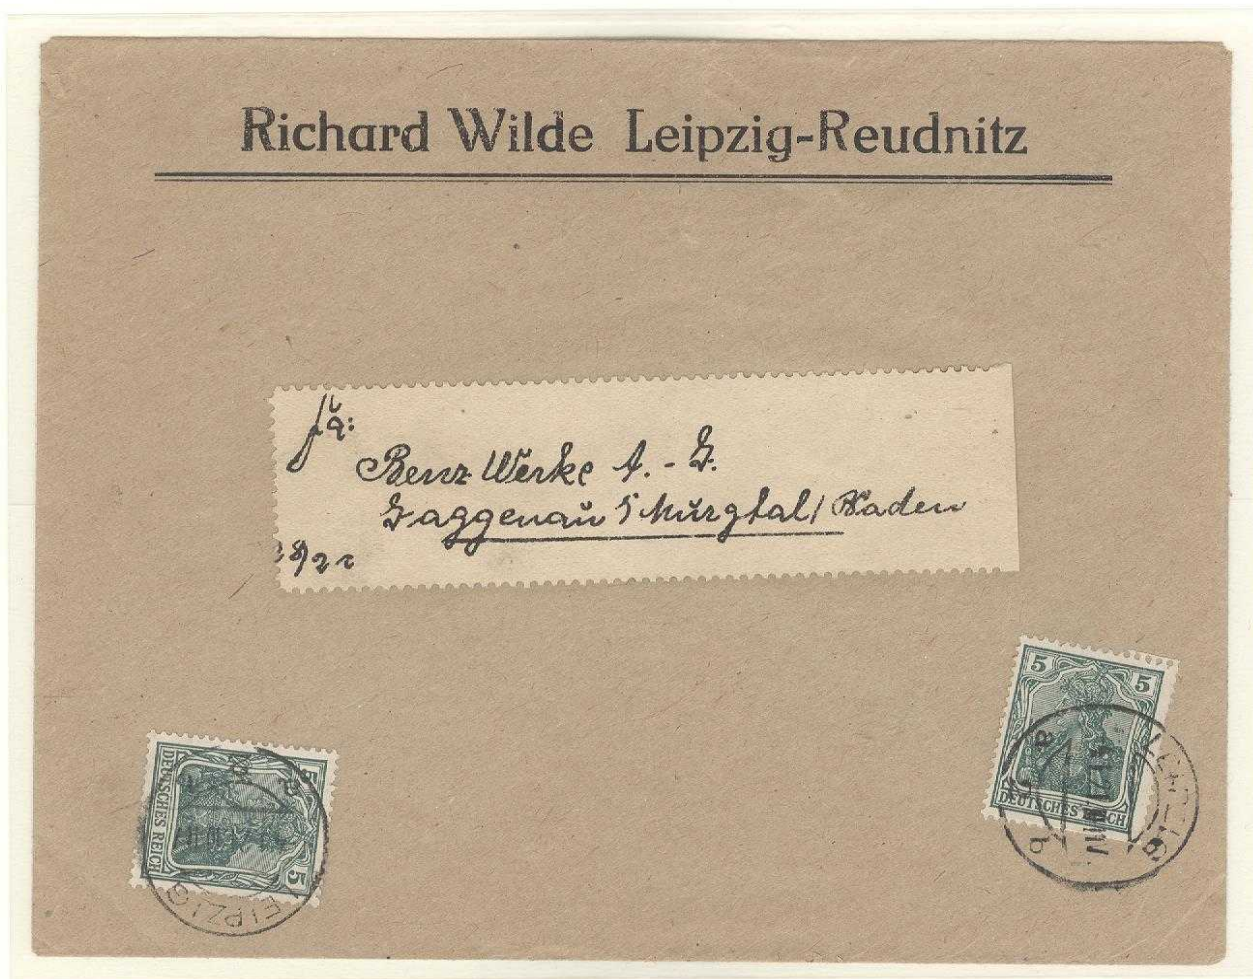 Richard Wilde Leipzig-Reudnitz
fa:
Benz Werke A.-G.
Gaggenau i Murgtal / Baden
5 5
DEUTSCHES REICH
LEIPZIG
a
b
5 5
DEUTSCHES REICH
LEIPZIG